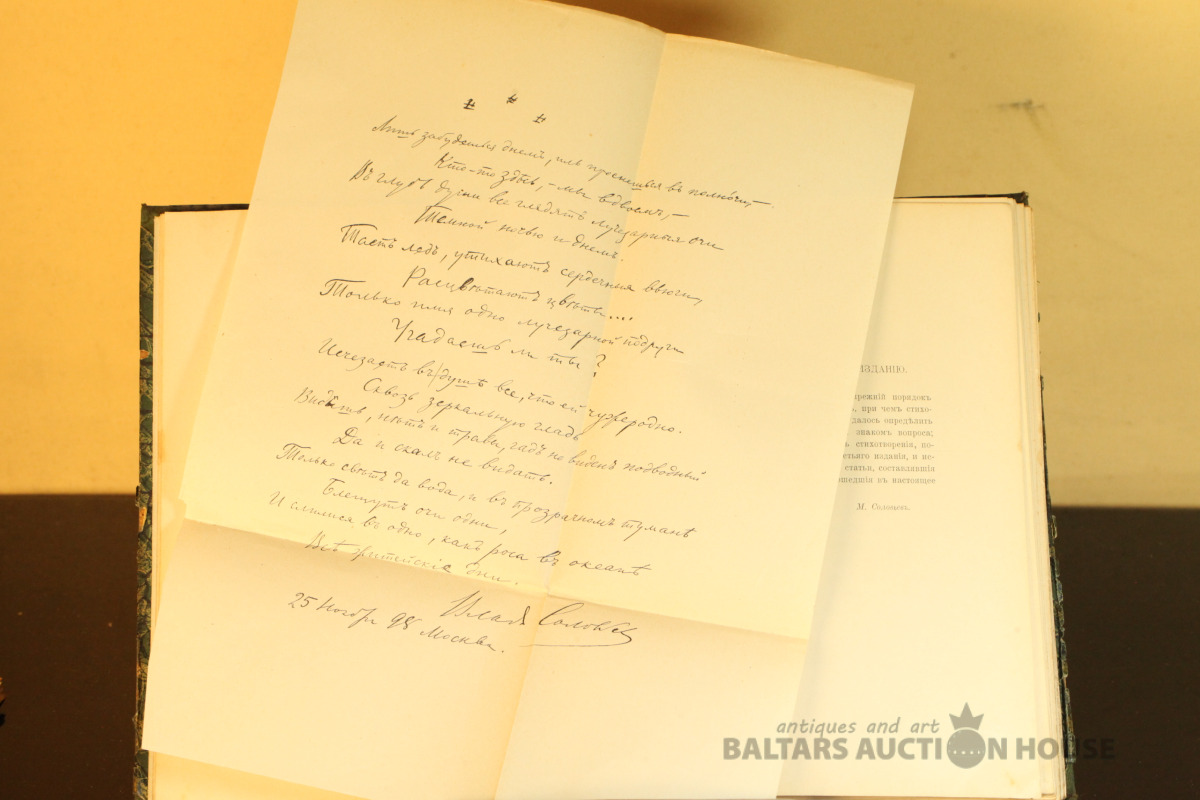 * * *
Лишь забудешься днемъ, иль проснешься въ полночи, –
Кто-то здѣсь, – мы вдвоемъ, –
Въ глубь души все глядятъ лучезарныя очи
Темной ночью и днемъ.
Таетъ ледъ, утихаютъ сердечныя вьюги,
Расцвѣтаютъ цвѣты....
Только имя одно лучезарной подруги
Угадаешь ли ты?
Исчезаетъ въ душѣ все, что ей чужеродно.
Сквозь зеркальную гладь
Видишь, нѣтъ и травы, гадъ не виденъ подводный
Да и скалъ не видать.
Только свѣтъ да вода, и въ прозрачномъ туманѣ
Блещутъ очи одни,
И слилися въ одно, какъ роса въ океанѣ
Всѣ житейскіе дни.
Влад Соловьев
25 Ноября 98 Москва.
ИЗДАНІЮ.
прежній порядокъ
при чемъ стихо-
удалось опредѣлить
знакомъ вопроса;
стихотворенія, по-
третьяго изданія, и не-
статьи, составлявшія
вошедшія въ настоящее
М. Соловьевъ.
antiques and art
BALTARS AUCTION HOUSE